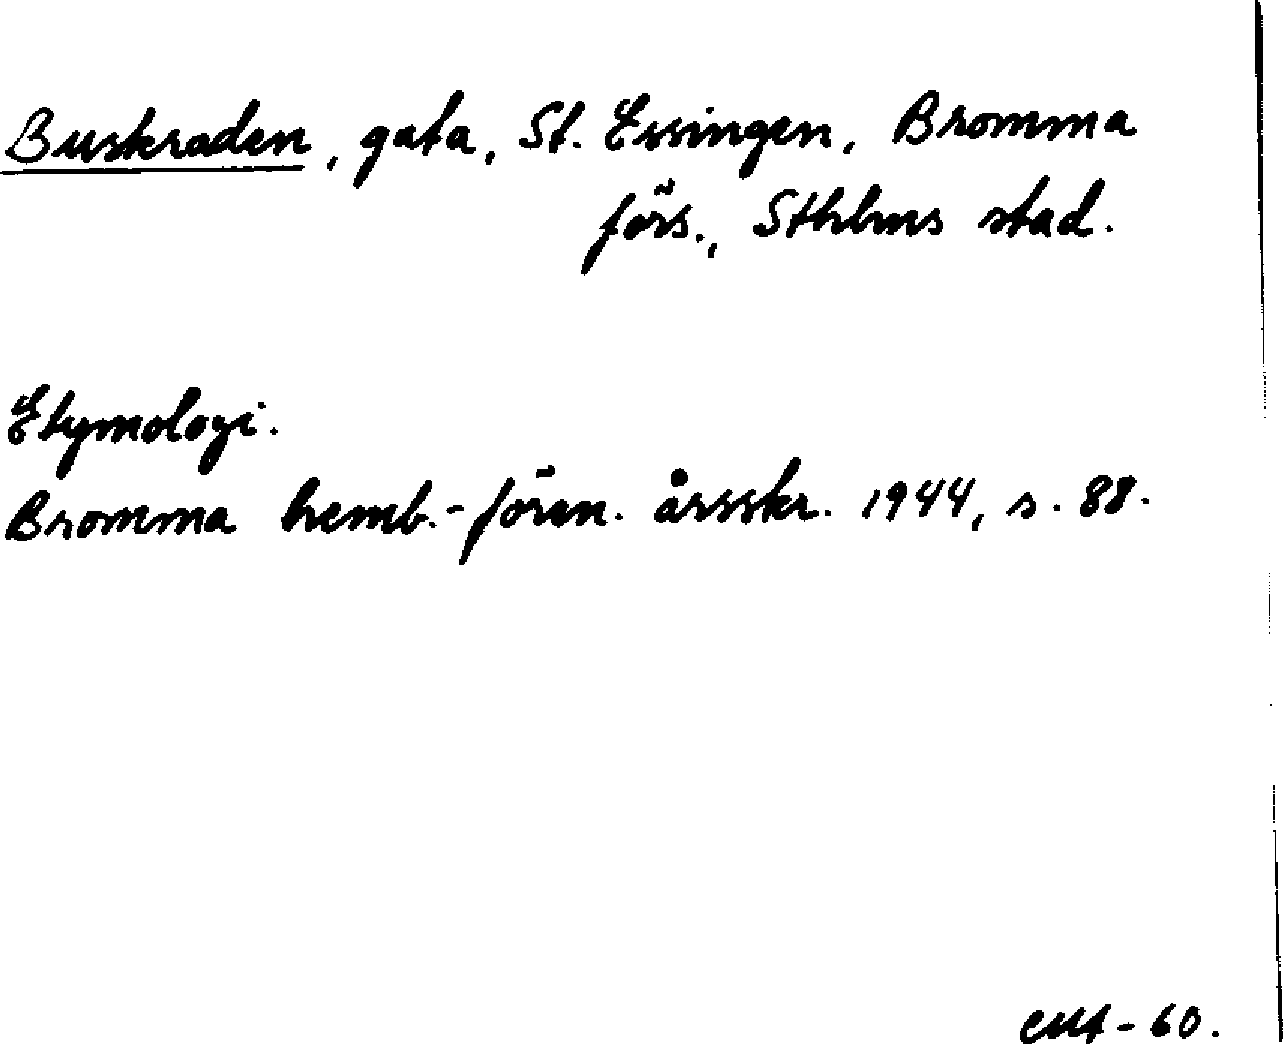 Buskraden, gata, St. Essingen, Bromma
förs., Sthlms stad.
Etymologi.
Bromma hemb.-fören. årsskr. 1944, s. 88.
-60.